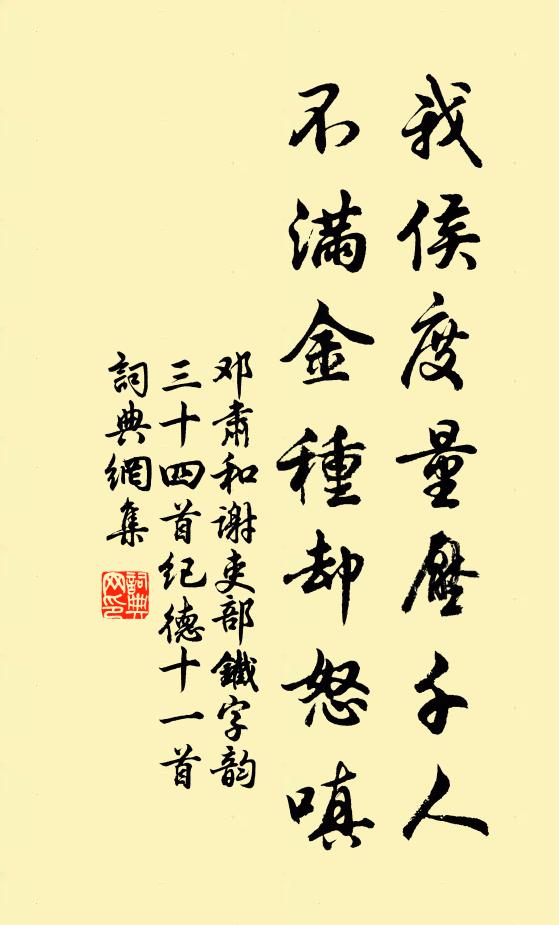 我侯度量壓千人
不滿金種却怒嗔
邓肅和谢吏部鐵字韵
三十四首纪德十一首
詞典網集
詞典网印